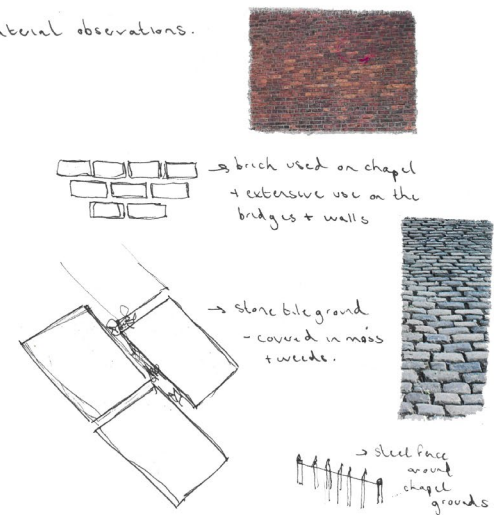 material observations.
→ brick used on chapel
+ extensive use on the
bridges + walls
→ stone tile ground
- covered in moss
+ weeds.
→ steel fence
around
chapel
grounds